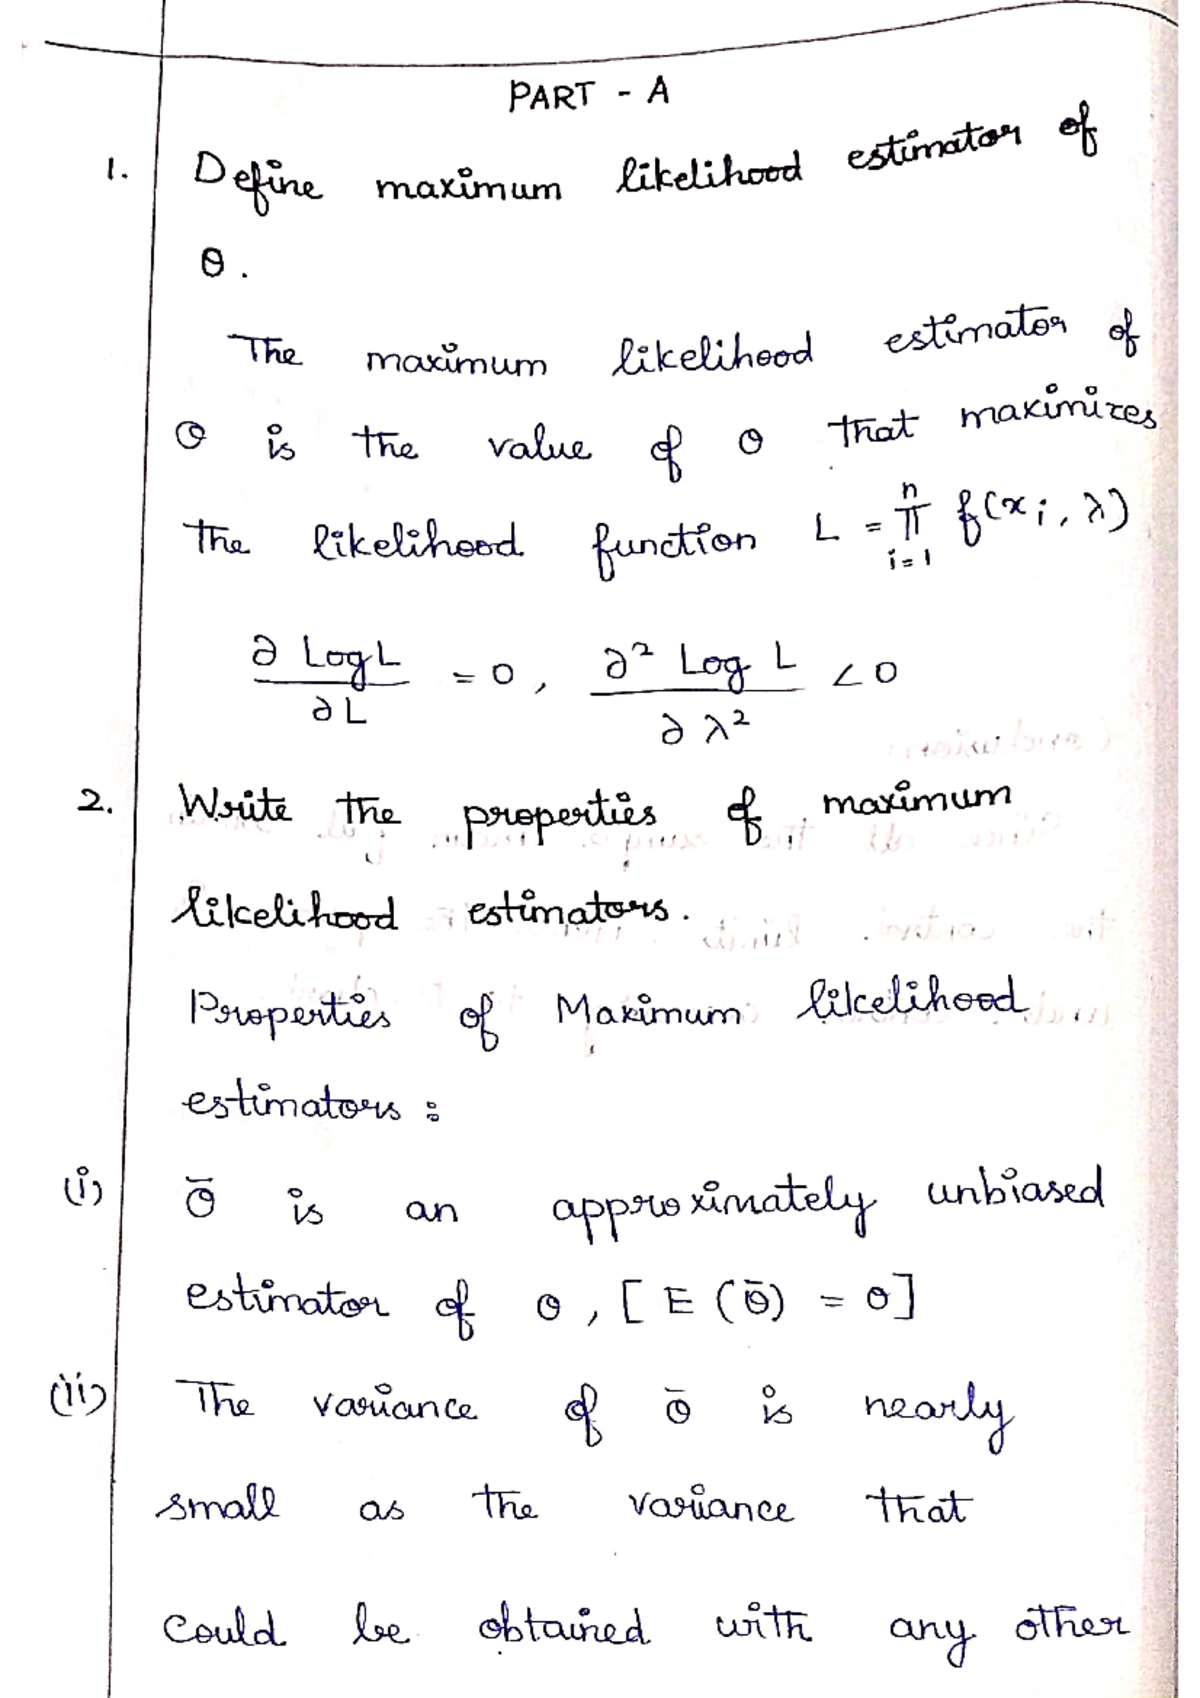 PART - A
1. Define maximum likelihood estimator of
θ.
The maximum likelihood estimator of
θ is the value of θ that maximizes
the likelihood function L = π f(x i, λ)
n
i=1
∂ Log L / ∂ L = 0, ∂² Log L / ∂ λ² < 0
2. Write the properties of maximum
likelihood estimators.
Properties of Maximum likelihood
estimators :
(i) θ̄ is an approximately unbiased
estimator of θ, [ E (θ̄) = θ]
(ii) The variance of θ̄ is nearly
small as the variance that
could be obtained with any other